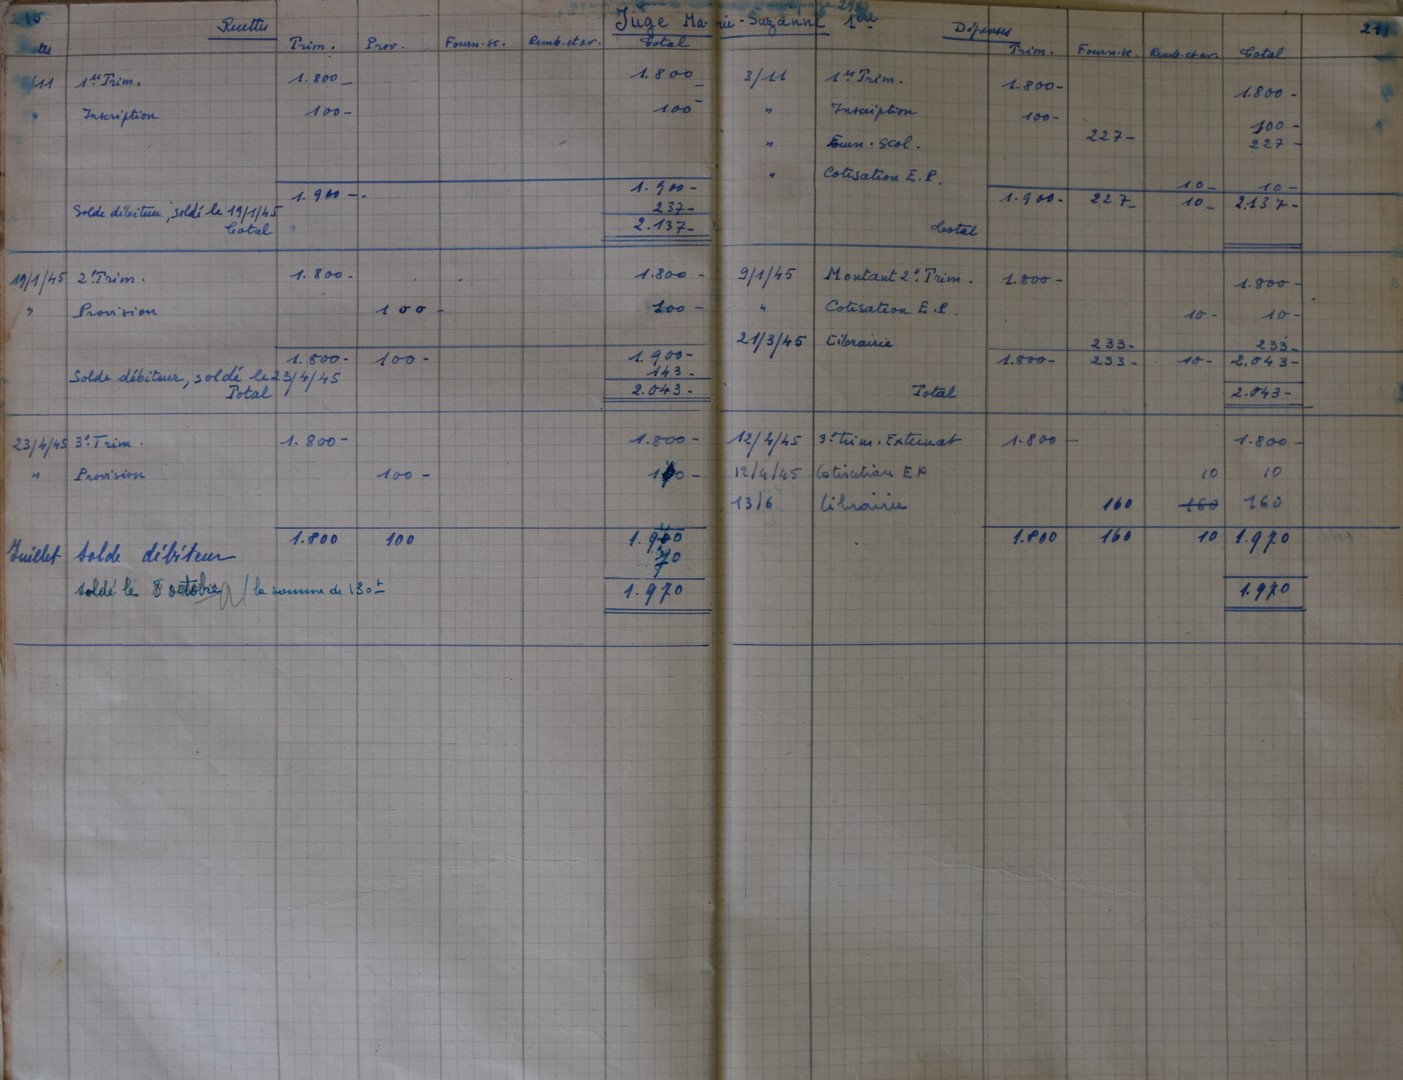 Juge Marie-Suzanne 1ère
Recettes
Trim. Prov. Fourn.sc. Remb.et av. Total
/11 1er Trim. 1.800 - 1.800 -
" Inscription 100 - 100 -
1.900 - 1.900 -
Solde débiteur, soldé le 19/1/45 237 -
Total 2.137 -
19/1/45 2e Trim. 1.800 - 1.800 -
" Provision 100 - 100 -
1.800 - 100 - 1.900 -
Solde débiteur, soldé le 23/4/45 143 -
Total 2.043 -
23/4/45 3e Trim. 1.800 - 1.800 -
" Provision 100 -
1.800 100
Juillet Solde débiteur 70
soldé le 8 octobre / la somme de 130f 1.970
Dépenses 211
Trim. Fourn.sc. Remb.et av. Total
3/11 1er Trim. 1.800 - 1.800 -
" Inscription 100 - 100 -
" Fourn. scol. 227 - 227 -
" Cotisation E.P. 10 - 10 -
1.900 - 227 - 10 - 2.137 -
Total
9/1/45 Montant 2e Trim. 1.800 - 1.800 -
" Cotisation E.P. 10 - 10 -
21/3/45 Librairie 233 - 233 -
1.800 - 233 - 10 - 2.043 -
Total 2.043 -
12/4/45 3e trim. Externat 1.800 - 1.800 -
12/4/45 Cotisation EP 10 10
13/6 Librairie 160 160 160
1.800 160 10 1.970
1.970